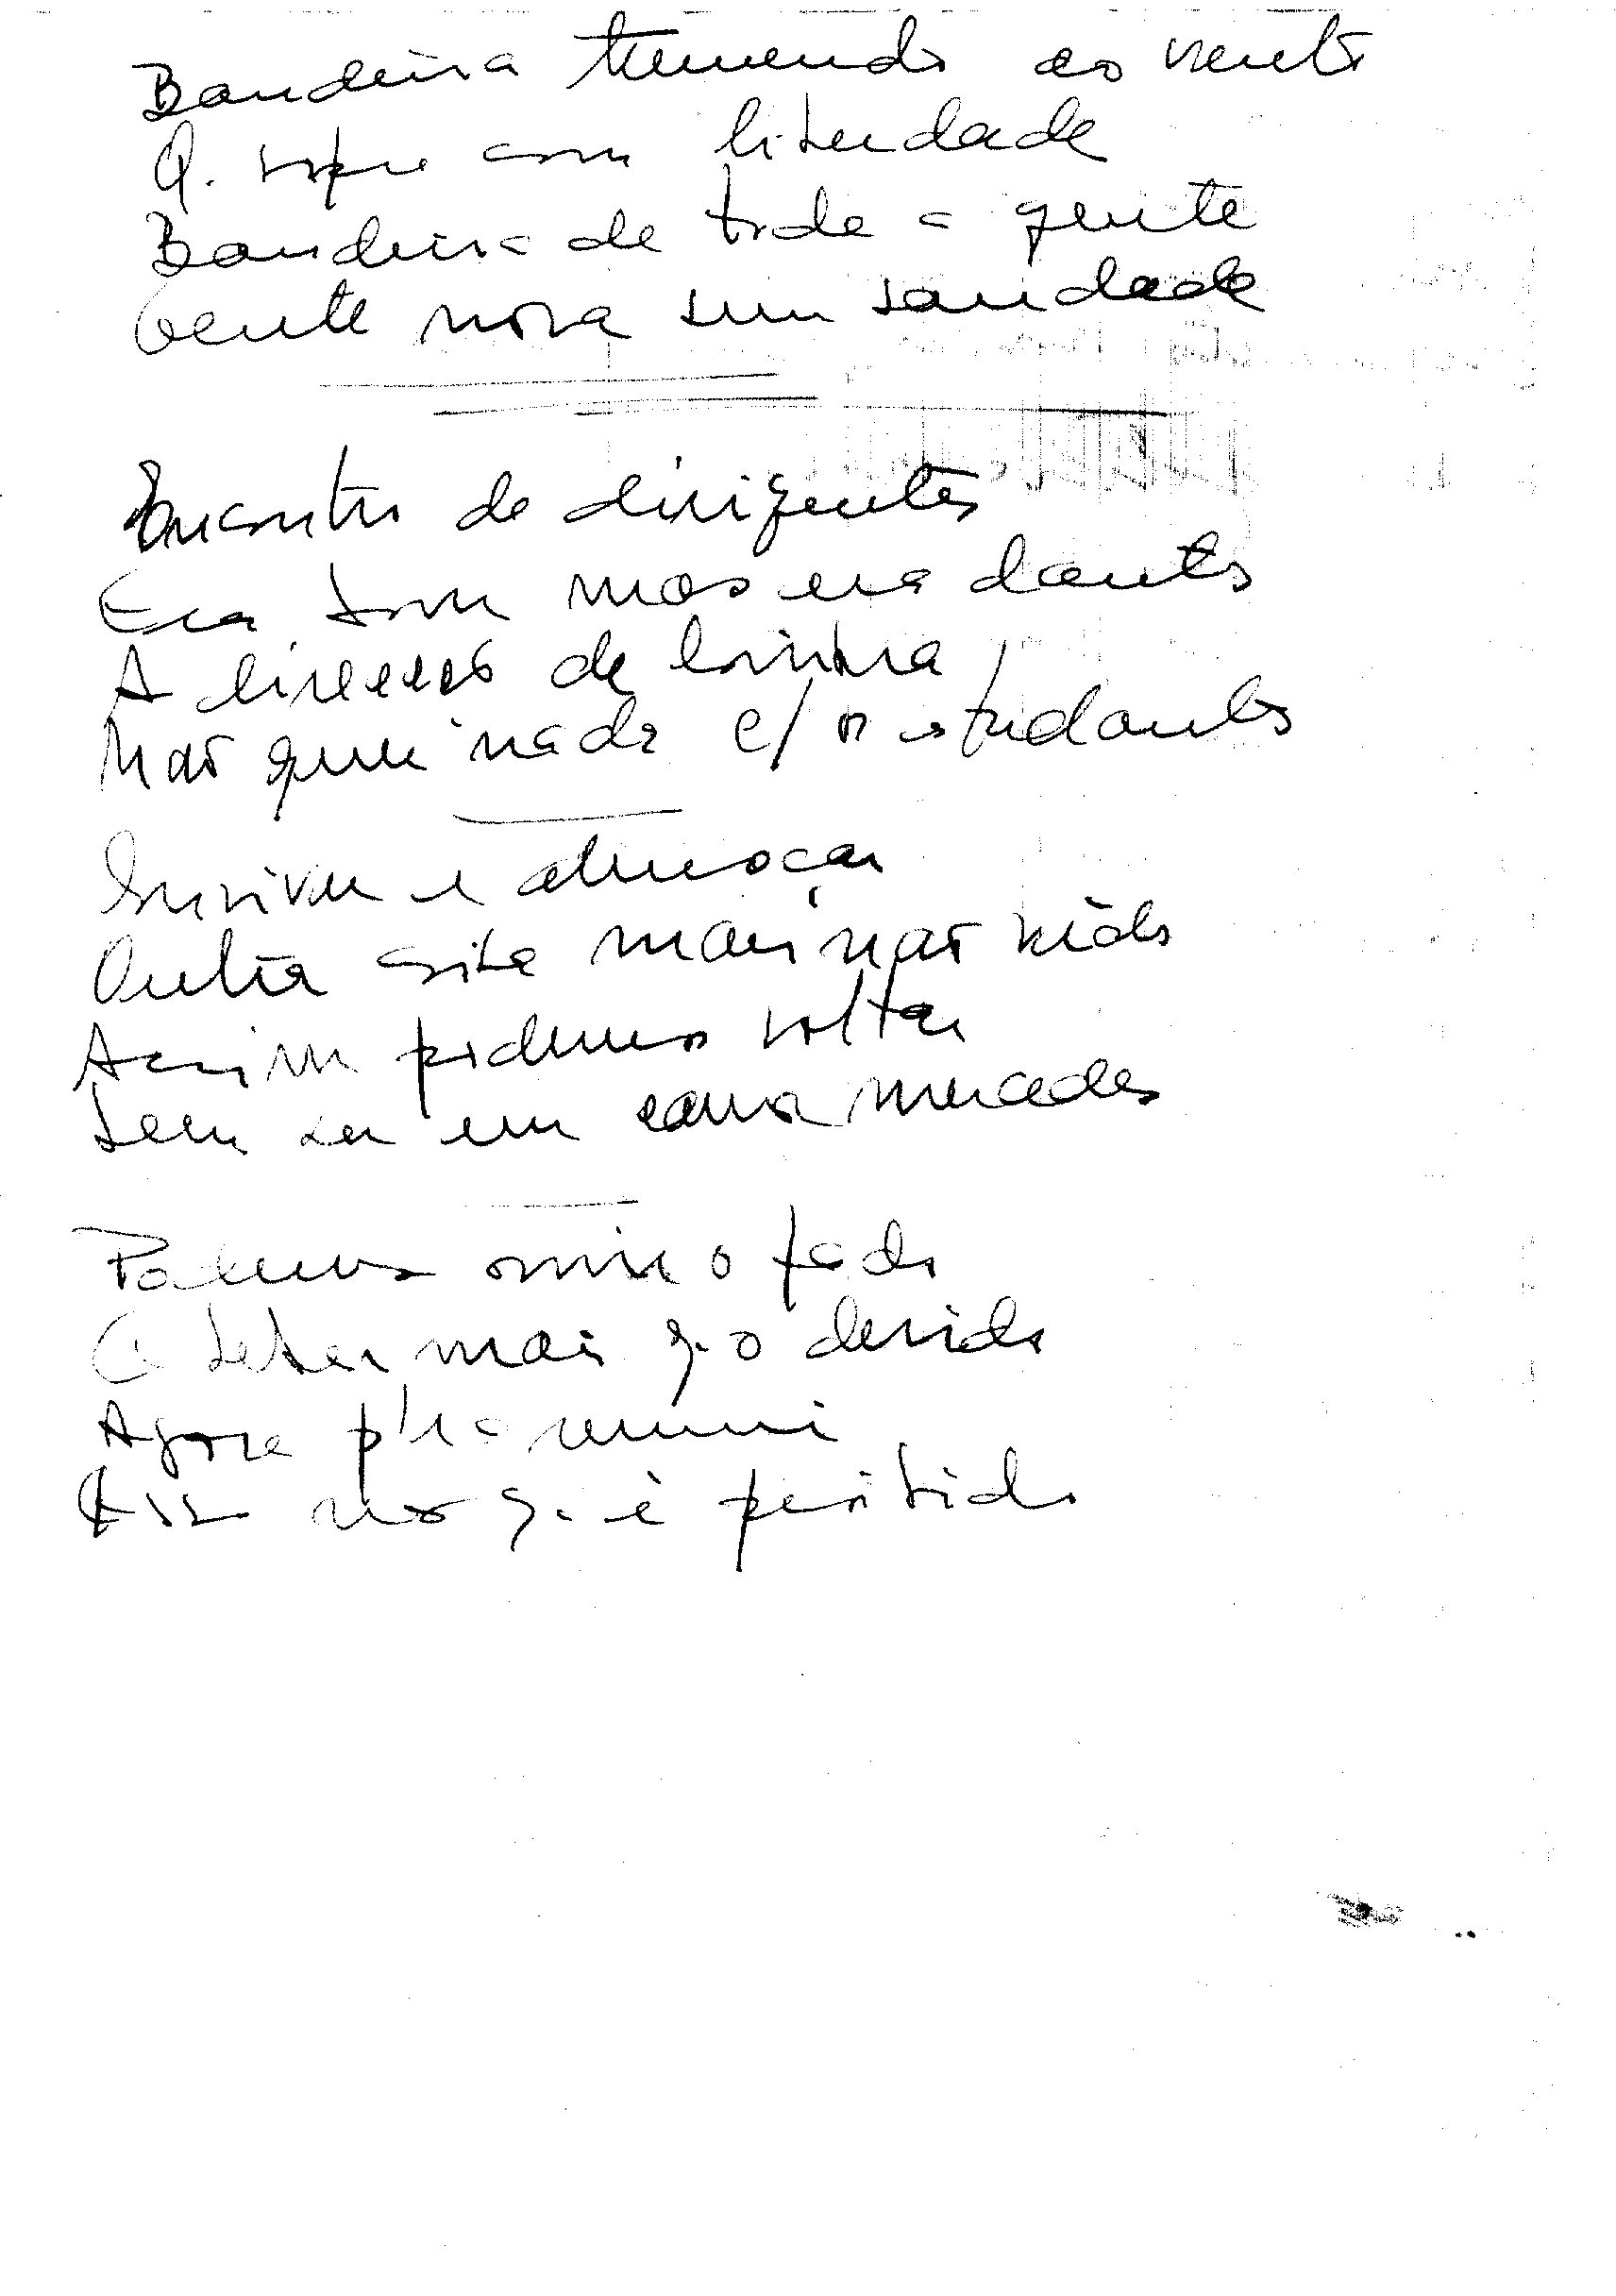 Bandeira tremendo ao vento
Q. sopre com liberdade
Bandeira de toda a gente
Gente nova sem saudade
Encontro de dirigentes
Era bom mas era dantes
A direcção de Coimbra
Não quer nada c/ os estudantes
Serviu e almoçar
Outra coisa mais não vêdes
Assim podemos voltar
Sem ser em carros mercedes
Falemos ouvir o fado
E beber mais q. o devido
Agora p'ra reunir
Isso não q. é proibido